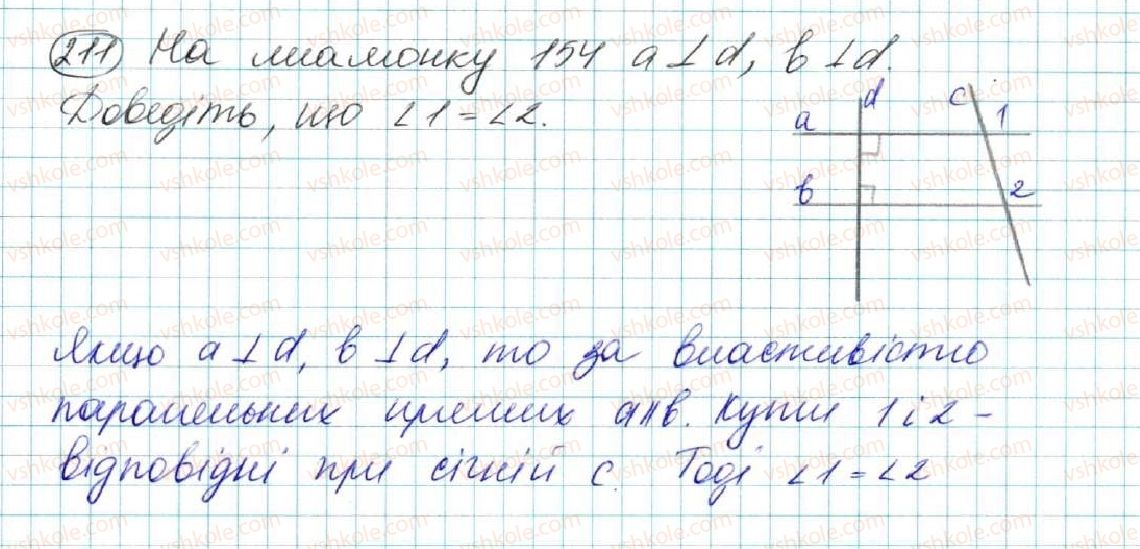 211 На малюнку 154 a⊥d, b⊥d.
Доведіть, що ∠1=∠2.
d c
a 1
b 2
Якщо a⊥d, b⊥d, то за властивістю
паралельних прямих a∥b. Кути 1 і 2 -
відповідні при січній c. Тоді ∠1=∠2
vshkole.com